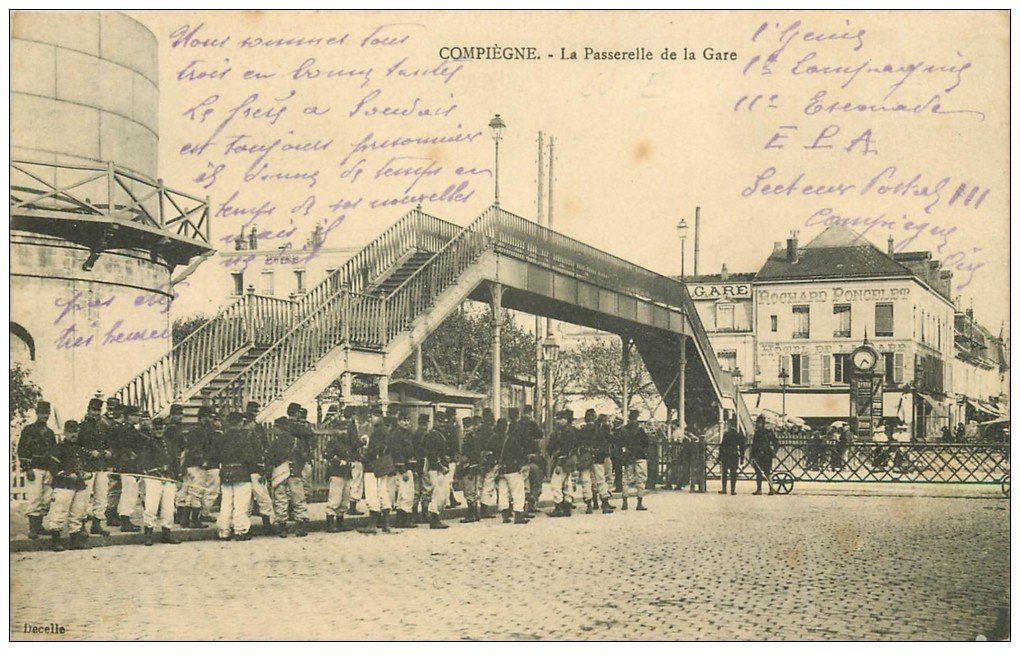 COMPIÈGNE. - La Passerelle de la Gare
Nous sommes tous
trois en bonne santé
Le frère a Soudais
est toujours prisonnier
il donne de temps en
temps de ses nouvelles
mais il
n'est
pas
très heureux
1r Génie
1re Compagnie
11e Escouade
E P A
Secteur Postal 111
Compiègne
Oise
GARE
ROCHARD PONCELET
Decelle